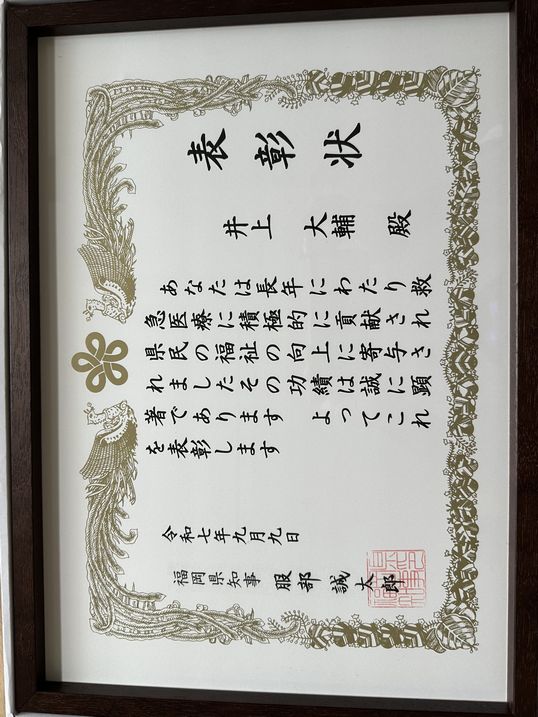 表彰状
井上大輔殿
あなたは長年にわたり救
急医療に積極的に貢献され
県民の福祉の向上に寄与さ
れましたその功績は誠に顕
著であります よってこれ
を表彰します
令和七年九月九日
福岡県知事 服部誠太郎